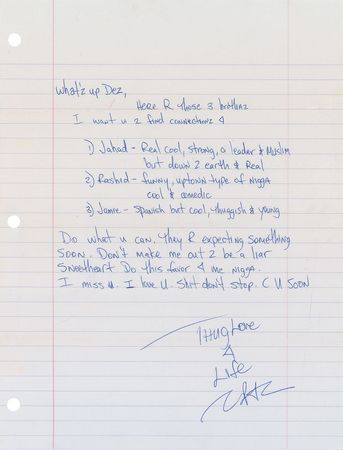 What'z up Dez,
Here R those 3 brothaz
I want u 2 find connectionz 4
1) Jahad - Real cool, strong, a leader & Muslim
but down 2 earth & Real
2) Rashid - funny, uptown type of nigga
cool & comedic
3) Jamie - Spanish but cool, thuggish & young
Do what u can. They R expecting something
soon. Don't make me out 2 be a liar
Sweetheart Do this favor 4 me nigga.
I miss u. I love U. Shit don't stop. C U SOON
Thug Love
4
Life